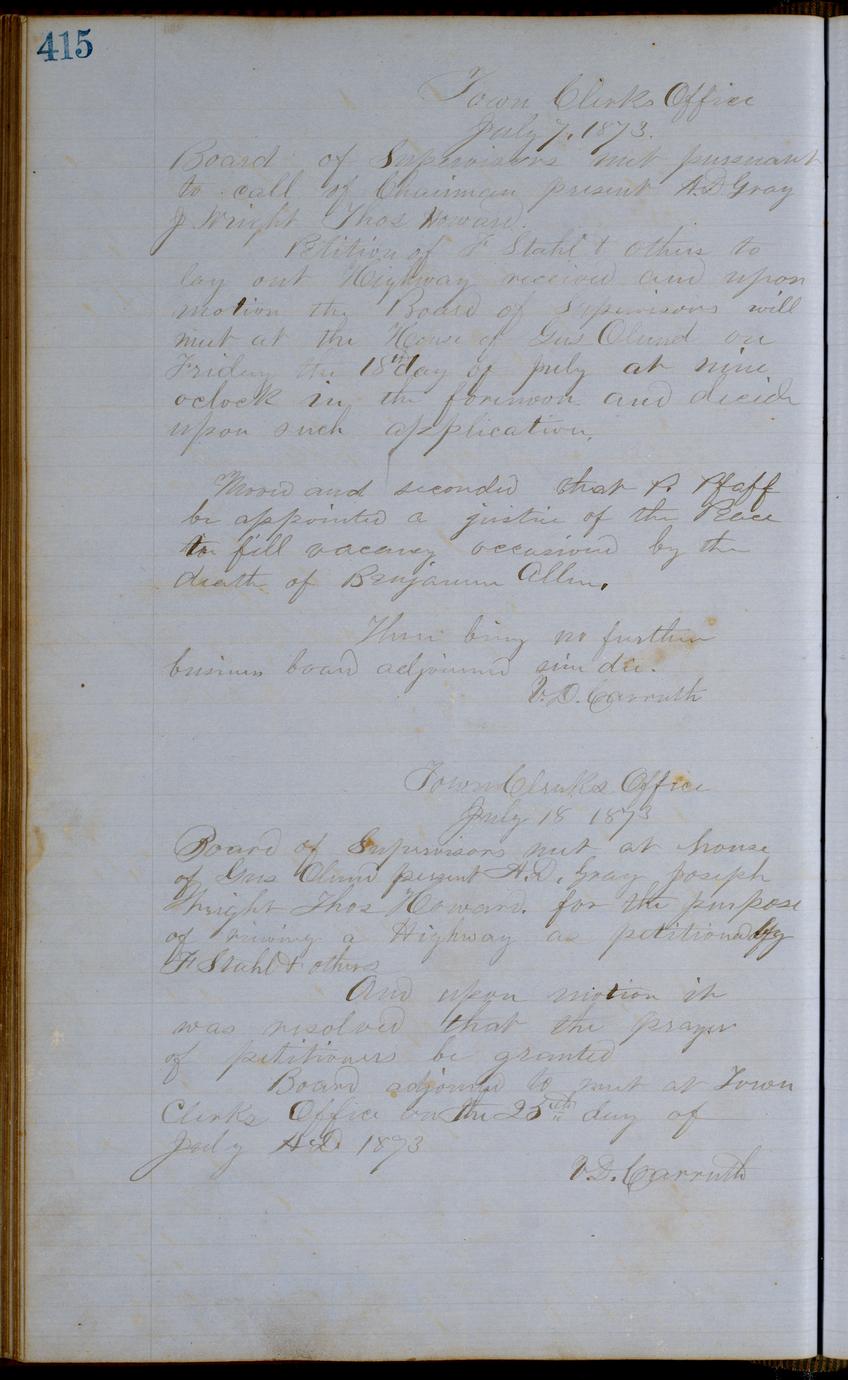 415
Town Clerks Office
July 7, 1873.
Board of Supervisors met pursuant
to call of Chairman present A.D. Gray
J Wright Thos Howard.
Petition of F Stahl & others to
lay out Highway received and upon
motion the Board of Supervisors will
meet at the House of Gus Olund on
Friday the 18th day of July at nine
oclock in the forenoon and decide
upon such application.
Moved and seconded that P. Pfaff
be appointed a justice of the Peace
to fill vacancy occasioned by the
death of Benjamin Allen.
There being no further
business board adjourned sine die.
V.D. Carruth
Town Clerks Office
July 18 1873
Board of Supervisors met at house
of Gus Olund present A.D. Gray Joseph
Wright Thos Howard. for the purpose
of viewing a Highway as petitioned by
F Stahl & others
And upon motion it
was resolved that the prayer
of petitioners be granted
Board adjorned to meet at Town
Clerks Office on the 25th day of
July A.D. 1873
V.D. Carruth